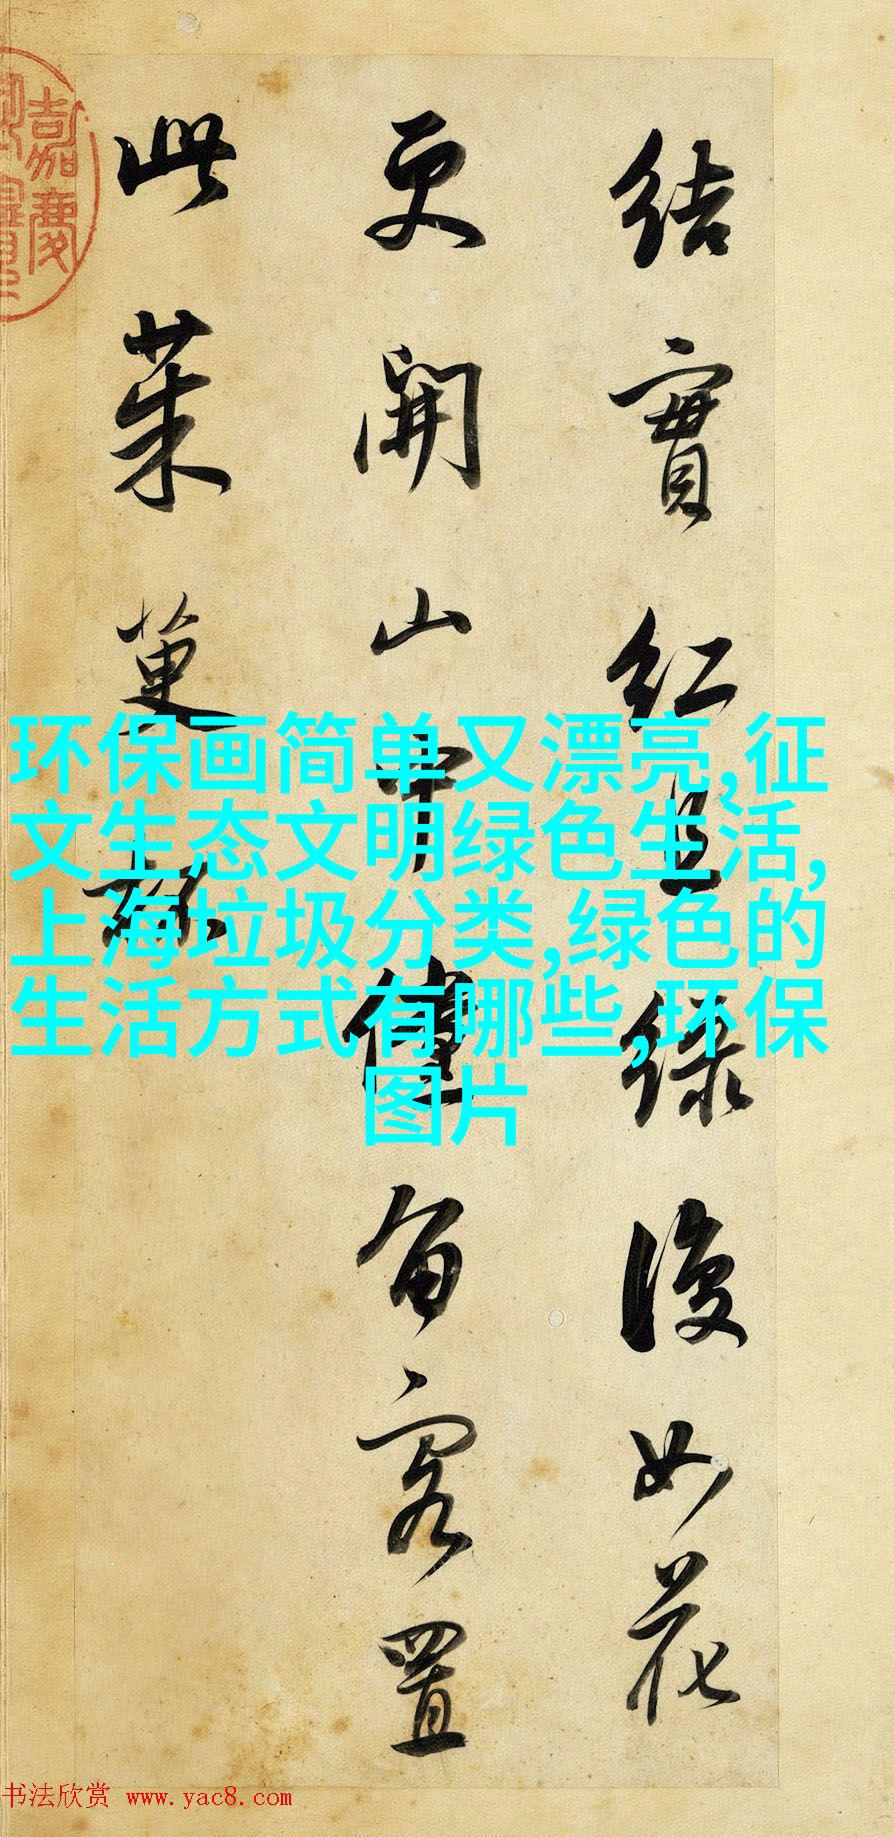 結實紅且綠復如花
更開山中儻留客置
此茱萸
嘉慶
环保画简单又漂亮,征
文生态文明绿色生活,
上海垃圾分类,绿色的
生活方式有哪些,环保
图片
书法欣赏 www.yac8.com